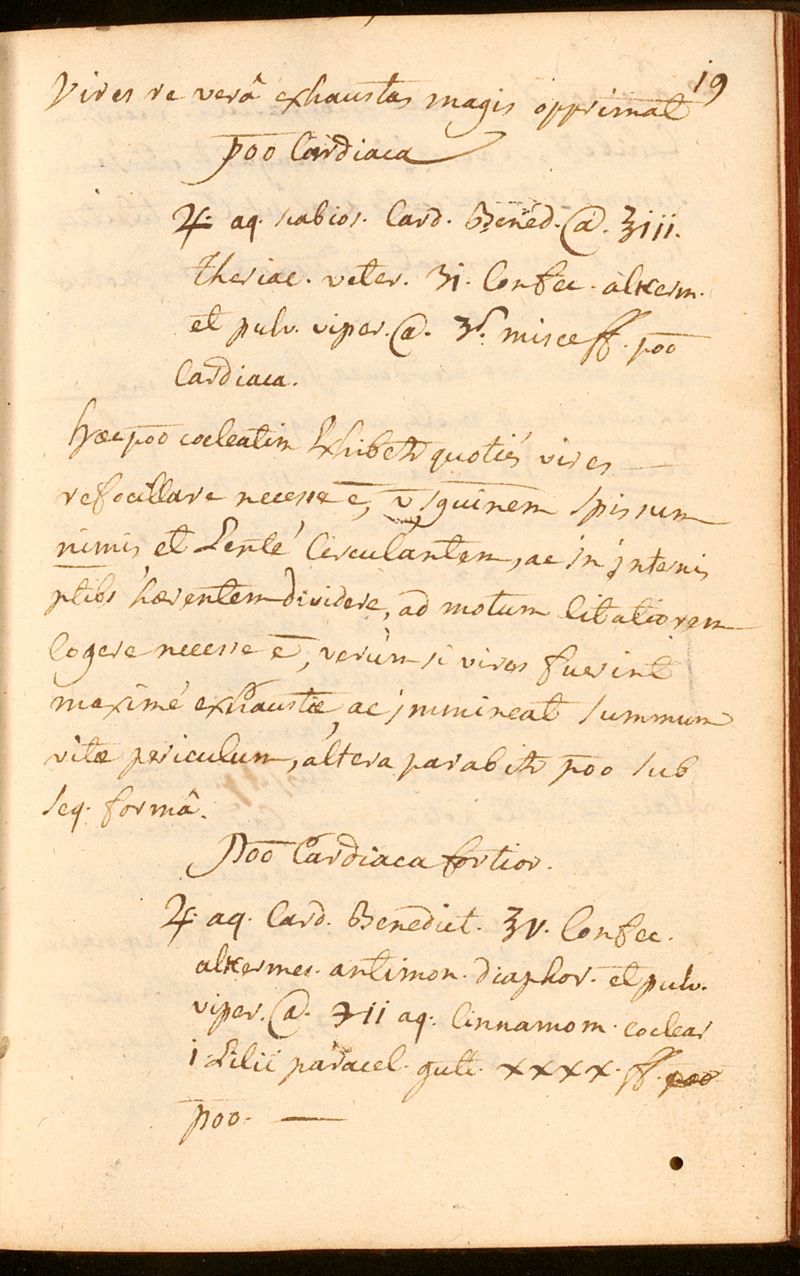 19
Vires re verâ exhaustas magis opprimat
poō Cardiaca
♃. aq. scabios. Card. Bened. @. ℥iii.
theriac. veter. ʒi. Confec. alkerm.
et pulv. viper. @. ʒſ. misce ff. poō
Cardiaca.
hæc poō cocleatim Exhibetr quotiés vires
refocillare necesse ē, vl sguinem spissum
nimis et Lenté Circulantem, ac in internis
ptibs hærentem dividere, ad motum Citatiorem
Cogere necesse ē, verùm si vires fuerint
maximé exhaustæ ac immineat summum
vitæ periculum, altera parabitr poō sub
seq. formâ.
Poō Cardiaca fortior.
♃. aq. Card. Benedict. ℥v. Confec.
alkermes. antimon. diaphor. et pulv.
viper. @. ℈ii aq. Cinnamom. coclear
i. Lilii paracel. gutt. xxxx. ff. poō
poō. —